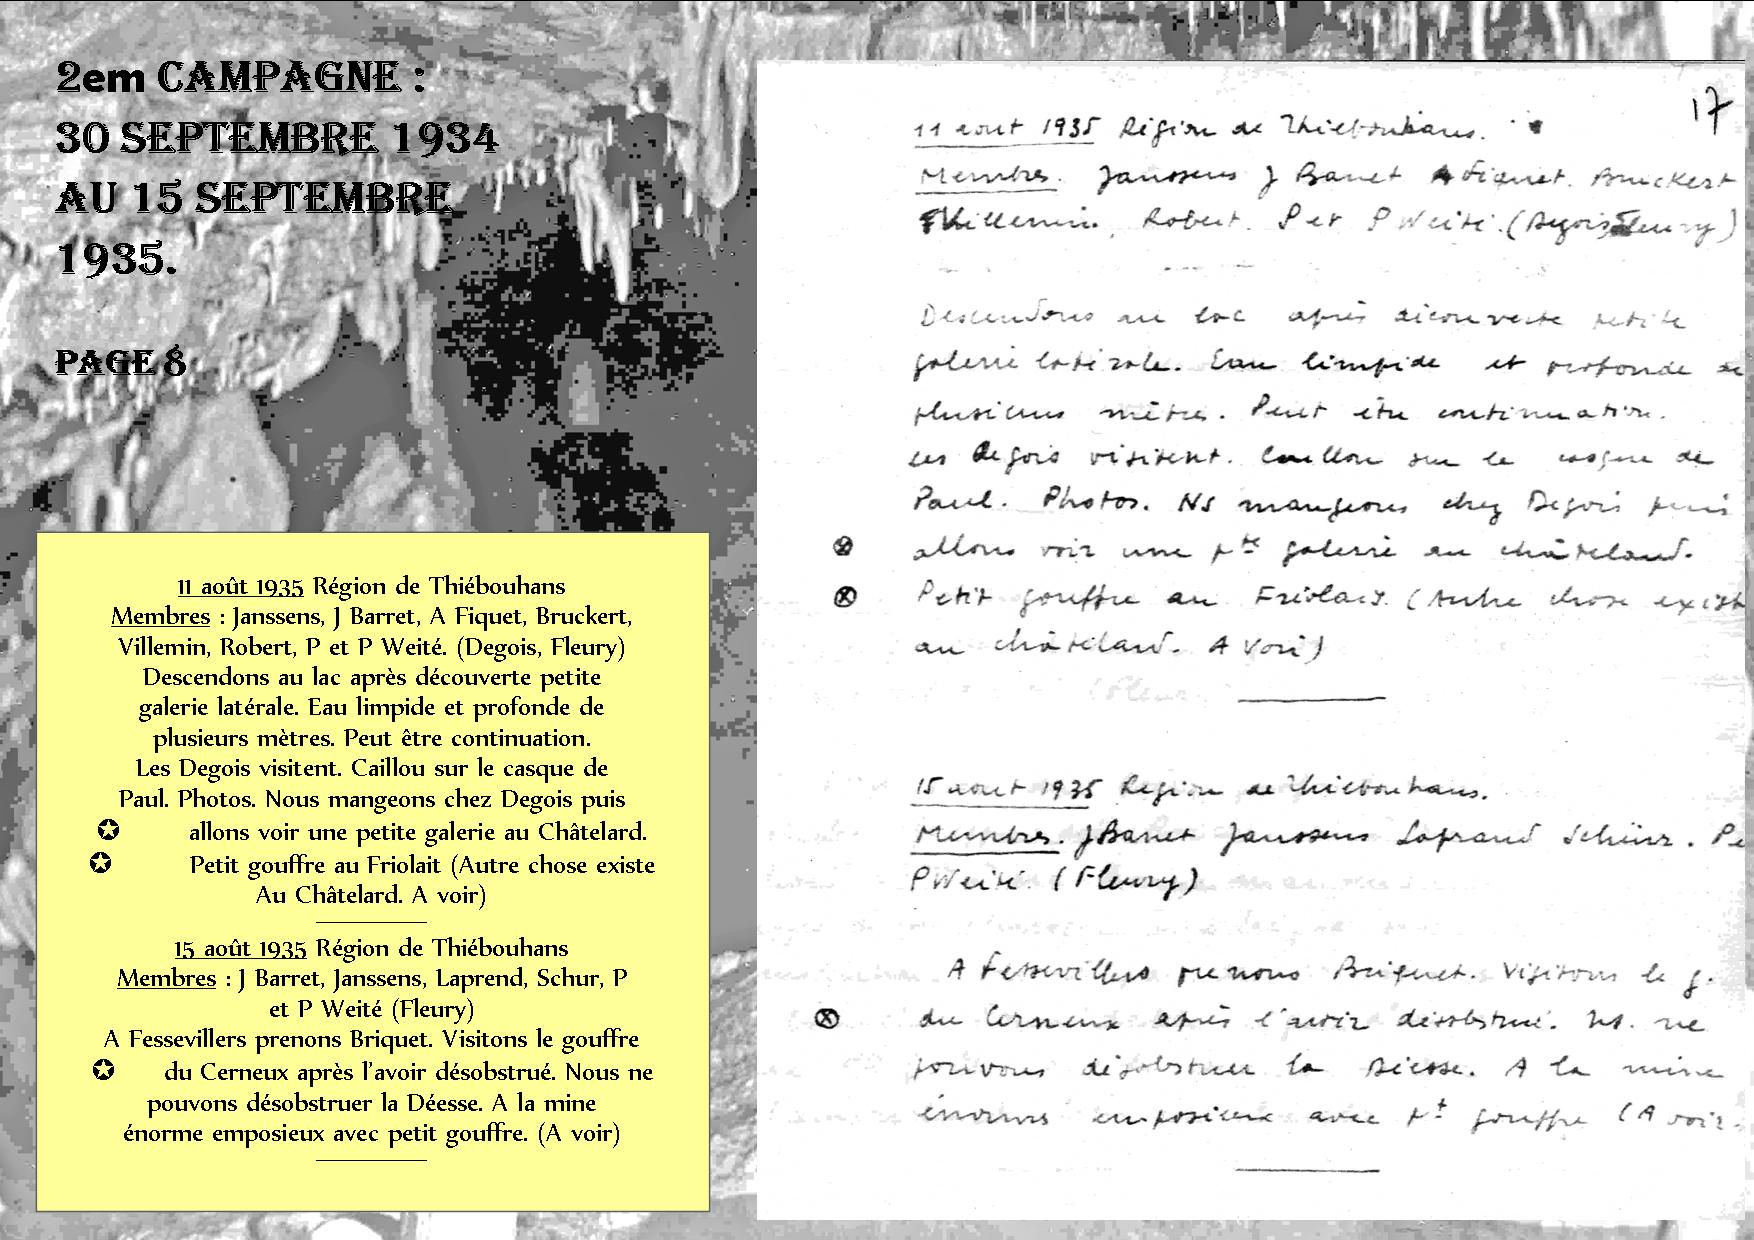 2em CAMPAGNE :
30 SEPTEMBRE 1934
AU 15 SEPTEMBRE
1935.
PAGE 8
11 août 1935 Région de Thiébouhans
Membres : Janssens, J Barret, A Fiquet, Bruckert,
Villemin, Robert, P et P Weité. (Degois, Fleury)
Descendons au lac après découverte petite
galerie latérale. Eau limpide et profonde de
plusieurs mètres. Peut être continuation.
Les Degois visitent. Caillou sur le casque de
Paul. Photos. Nous mangeons chez Degois puis
✪ allons voir une petite galerie au Châtelard.
✪ Petit gouffre au Friolait (Autre chose existe
Au Châtelard. A voir)
15 août 1935 Région de Thiébouhans
Membres : J Barret, Janssens, Laprend, Schur, P
et P Weité (Fleury)
A Fessevillers prenons Briquet. Visitons le gouffre
✪ du Cerneux après l'avoir désobstrué. Nous ne
pouvons désobstruer la Déesse. A la mine
énorme emposieux avec petit gouffre. (A voir)
17
11 aout 1935 Région de Thiebouhans.
Membres. Janssens J Barret A Fiquet. Bruckert
Villemin, Robert. P et P Weité. (Degois, Fleury)
Descendons au lac après découverte petite
galerie latérale. Eau limpide et profonde de
plusieurs mètres. Peut être continuation.
Les Degois visitent. Caillou sur le casque de
Paul. Photos. Ns mangeons chez Degois puis
⊗ allons voir une pte galerie au châtelard.
⊗ Petit gouffre au Friolais. (Autre chose exist
au châtelard. A voir)
15 aout 1935 Région de Thiebouhans.
Membres. J Barret Janssens Laprand Schürr. P e
P Weité. (Fleury)
A Fessevillers prenons Briquet. Visitons le g.
⊗ du Cerneux après l'avoir désobstrué. Ns. ne
pouvons désobstruer la Déesse. A la mine
énorme emposieux avec pt gouffre (A voir.